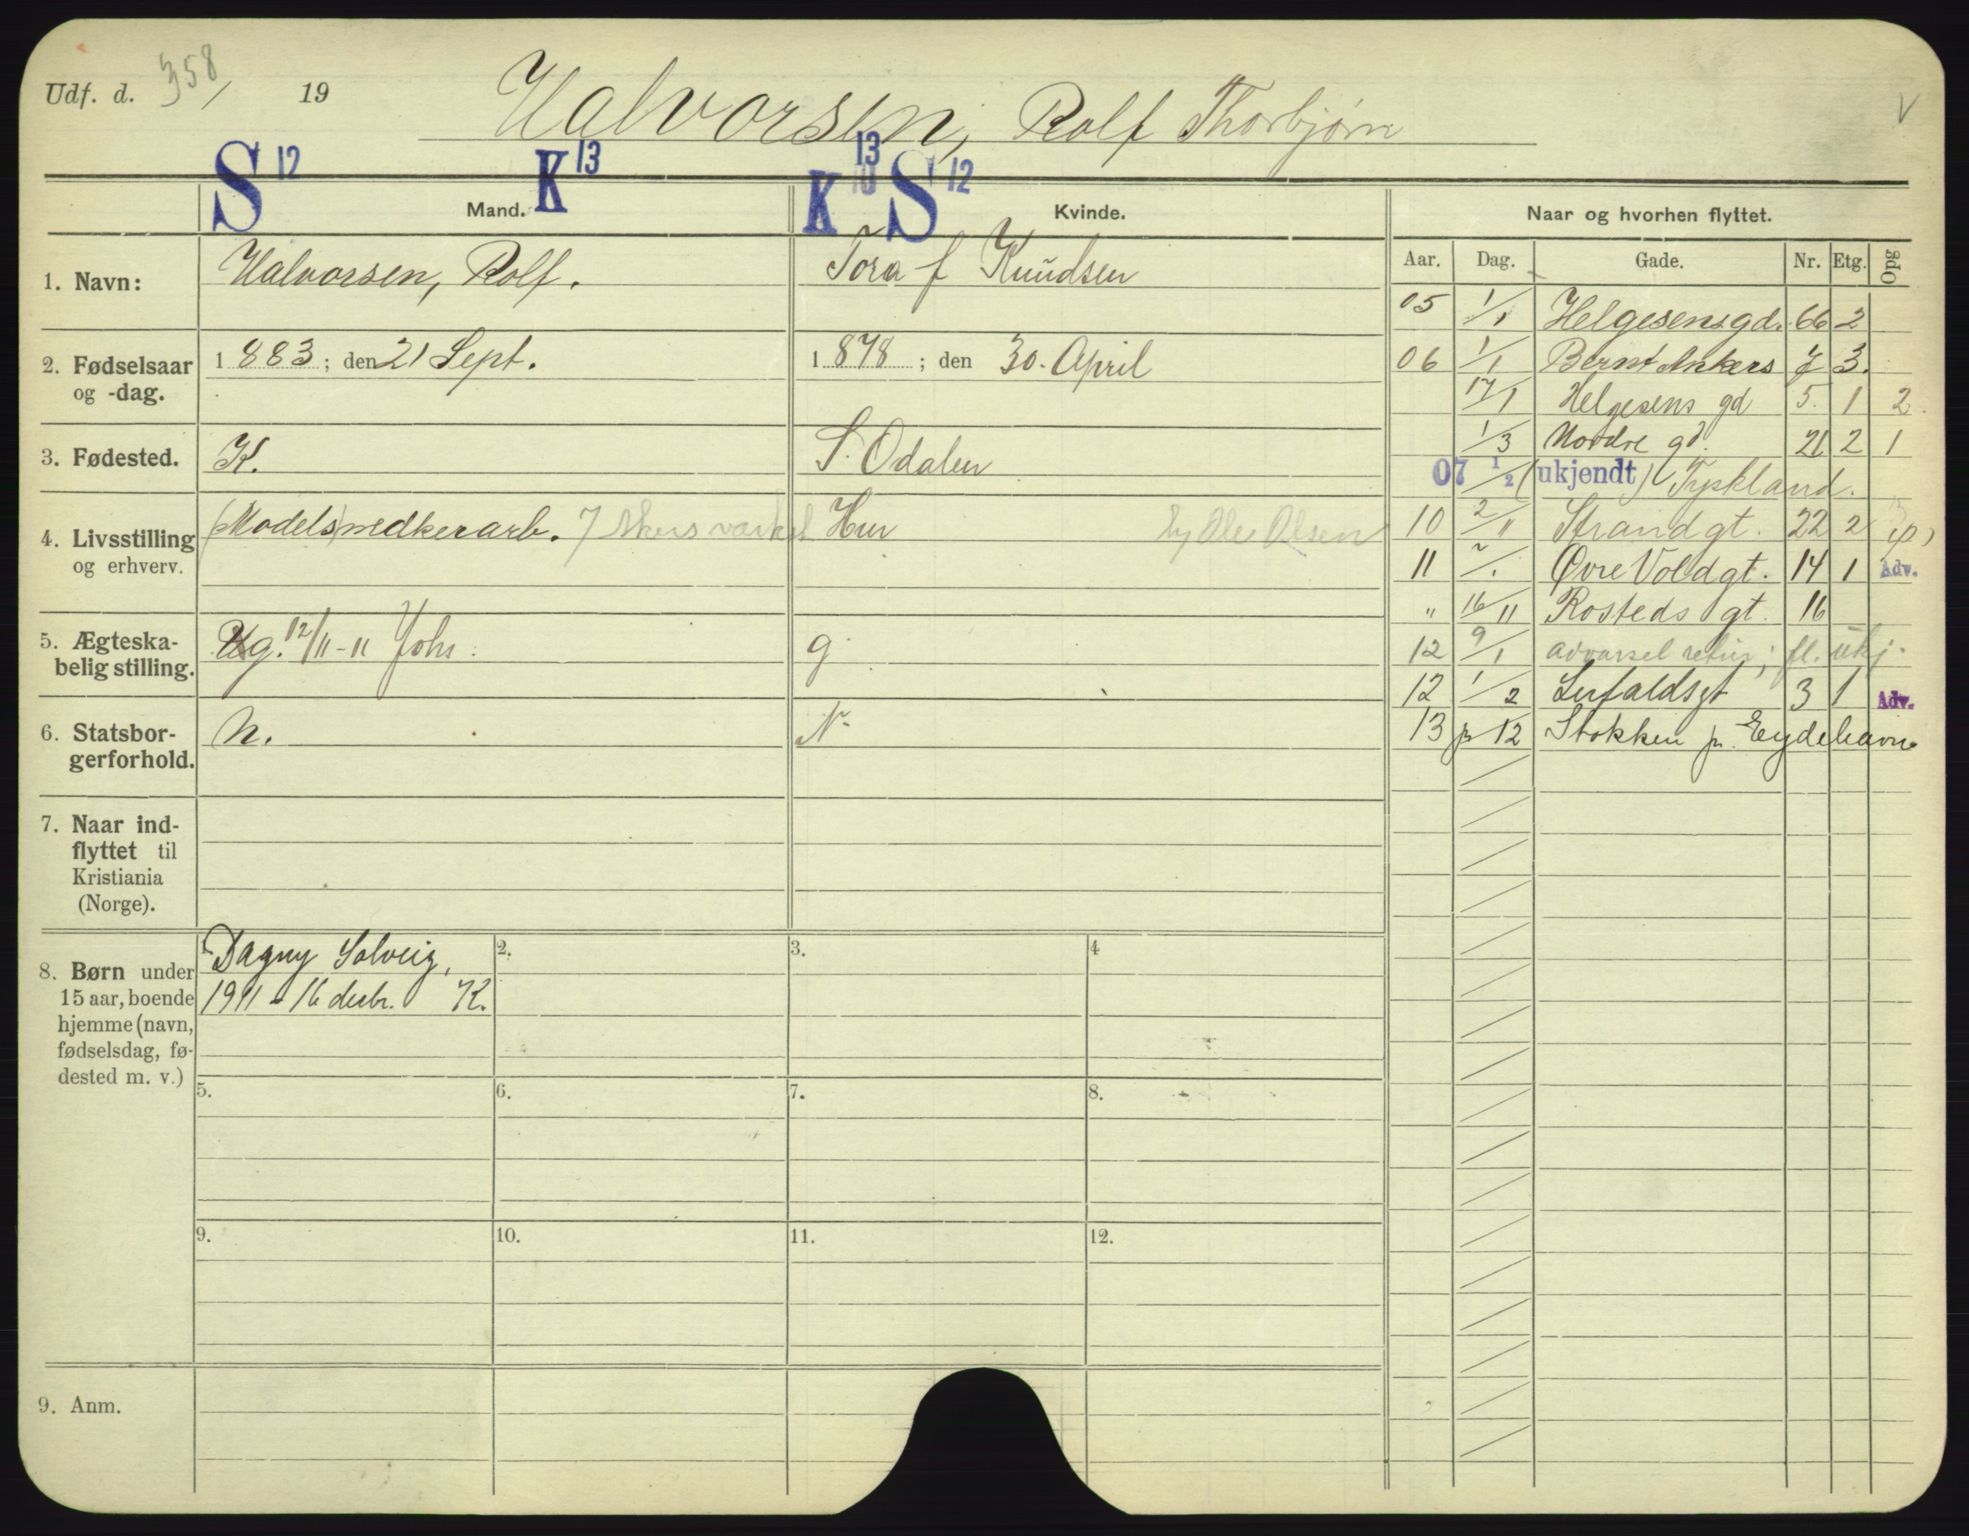 Udf. d. 358/ 19 Halvorsen, Rolf Thorbjørn V
S 12 K 13 K 13 S 12
Mand. Kvinde. Naar og hvorhen flyttet.
Aar. Dag. Gade. Nr. Etg. Opg
1. Navn: Halvorsen, Rolf. Tora f Knudsen
05 1/1 Helgesensgd. 66 2
2. Fødselsaar og -dag. 1883; den 21 Sept. 1878; den 30. April
06 1/1 Bernt Ankers 7 3.
17/1 Helgesens gd 5. 1 2.
3. Fødested. K. S. Odalen
1/3 Nordre gd. 21 2 1
07 1/2 (ukjendt) Tyskland.
4. Livsstilling og erhverv. (Models)nedkerarb. Akers værksd Hur Ole Olsen
10 2/11 Strandgt. 22 2
11 /1 Øvre Voldgt. 14 1 Adv.
" 16/11 Rosteds gt. 16
5. Ægteska-
belig stilling. Ug. 12/11-11 Johs. g
12 9/1 advarsel retur; fl. ukj.
12 1/2 Lerfaldsgt 3 1 Adv.
6. Statsbor-
gerforhold. N. N.
13 p 12 Stokken pr. Eydehavn
7. Naar ind-
flyttet til
Kristiania
(Norge).
8. Børn under
15 aar, boende
hjemme (navn,
fødselsdag, fø-
dested m. v.)
1. Dagny Solveig, 2. 3. 4
1911 - 16 decbr. K.
5. 6. 7. 8.
9. 10. 11. 12.
9. Anm.